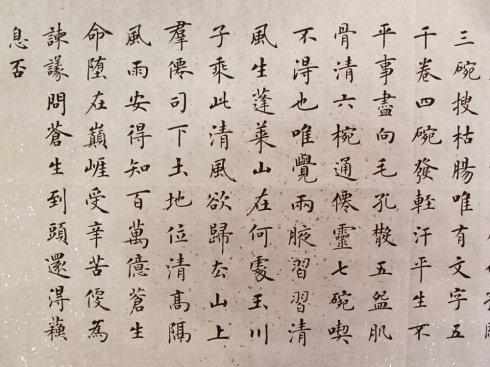 三碗搜枯腸唯有文字五
千卷四碗發輕汗平生不
平事盡向毛孔散五盌肌
骨清六椀通僊靈七碗喫
不得也唯覺兩腋習習清
風生蓬萊山在何處玉川
子乘此清風欲歸去山上
羣僊司下土地位清高隔
風雨安得知百萬億蒼生
命堕在巔崕受辛苦便為
諫議問蒼生到頭還得蘇
息否